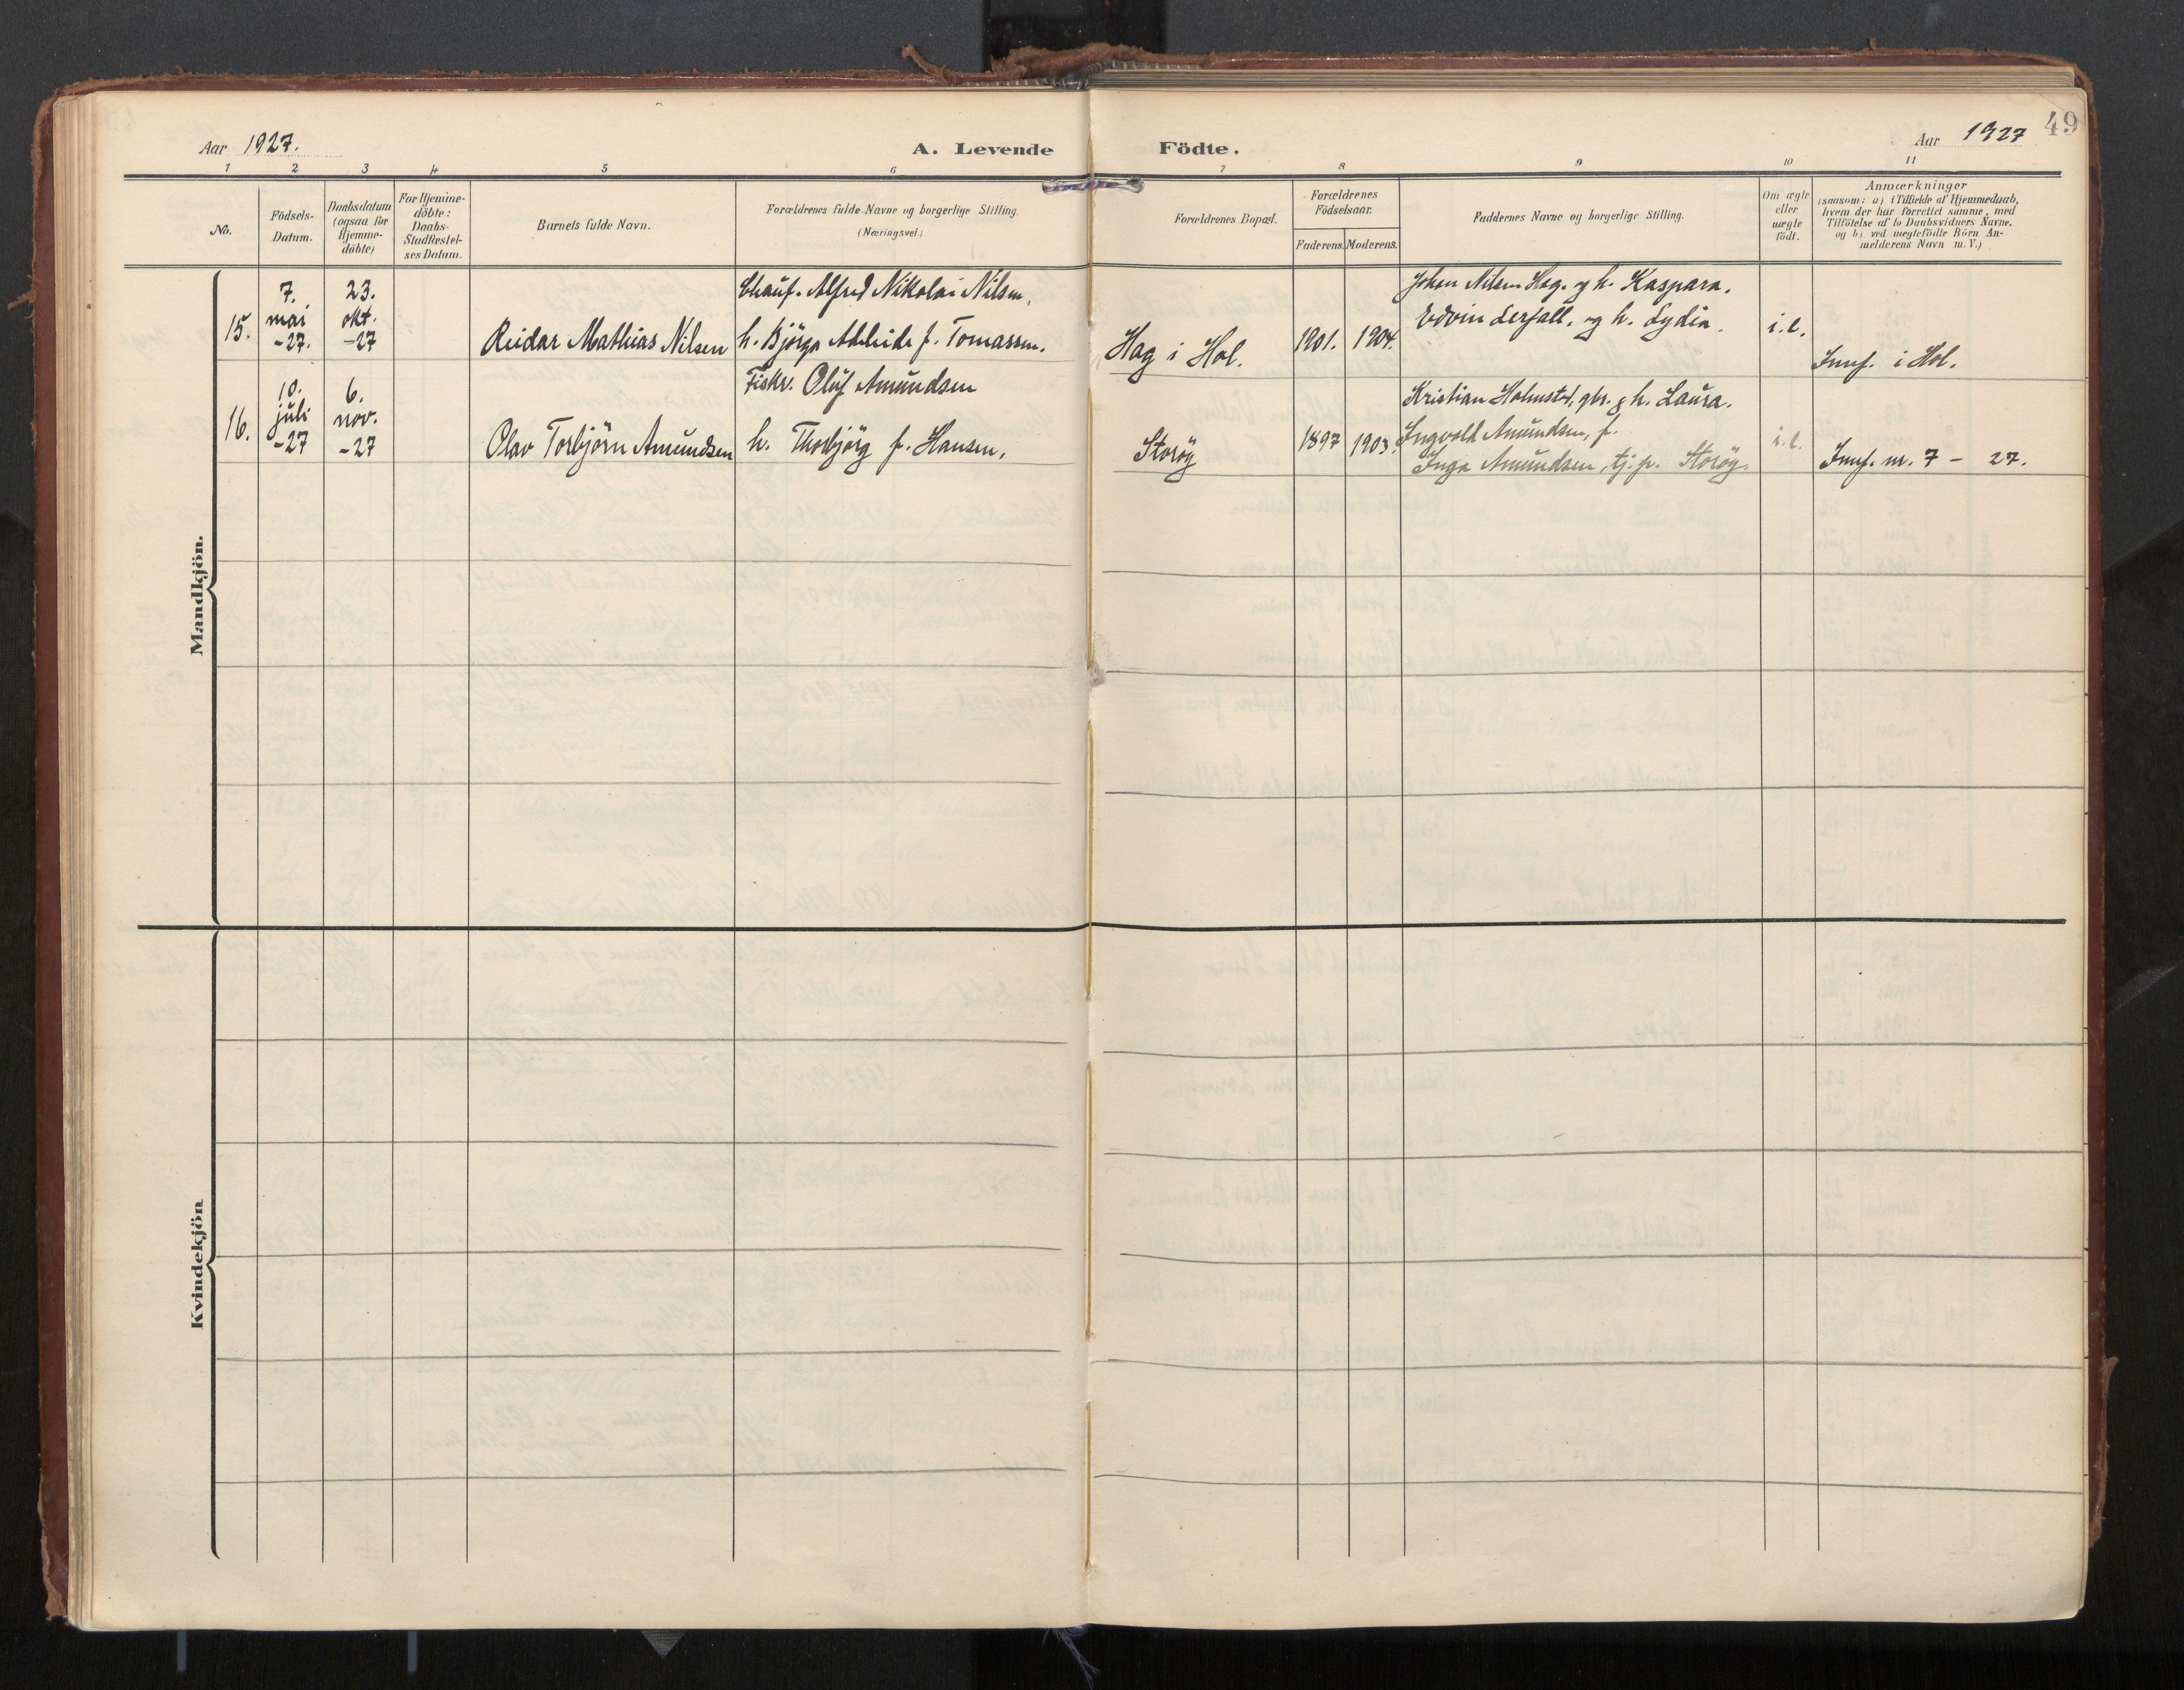 49
Aar 1927.
A. Levende Födte.
Aar 1927
1 2 3 4 5 6 7 8 9 10 11
No.
Födsels-
Datum.
Daabsdatum
(ogsaa for
Hjemme-
döbte)
For Hjemme-
döbte:
Daabs-
Stadfæstel-
ses Datum.
Barnets fulde Navn.
Forældrenes fulde Navne og borgerlige Stilling.
(Næringsvei.)
Forældrenes Bopæl.
Forældrenes
Födselsaar.
Faderens. Moderens.
Faddernes Navne og borgerlige Stilling.
Om ægte
eller
uægte
födt.
Anmærkninger
(saasom: a) i Tilfælde af Hjemmedaab,
hvem der har forrettet samme, med
Tilföielse af to Daabsvidners Navne,
og b) ved uægtefödte Börn An-
melderens Navn m. V.)
Mandkjön.
15.
7.
mai
-27.
23.
okt.
-27
Reidar Mathias Nilsen
Chauf. Alfred Nikolai Nilsen,
h. Björga Adeleide f. Tomassen.
Hag i Hol.
1901. 1904.
Johan Nilsen Hag. og h. Kaspara.
Edvin Lerfall. og h. Lydia.
i.e.
Innf. i Hol.
16.
10.
juli
-27
6.
nov.
-27
Olav Torbjörn Amundsen
Fiskr. Oluf Amundsen
h. Thorbjörg f. Hansen.
Storöy
1897 1903.
Kristian Holmstd, gbr. & h. Laura.
Ingvald Amundsen, f.
Inga Amundsen, tj.p. Storöy.
i.e.
Innf. nr. 7 - 27.
Kvindekjön